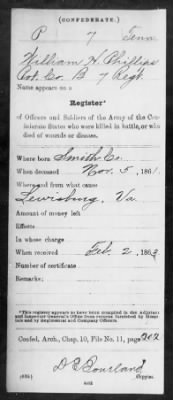 (CONFEDERATE.)
P 7 Tenn
William H. Phillips
Co. B 7 Regt.
Name appears on a
Register*
of Officers and Soldiers of the Army of the Confederate States who were killed in battle, or who
died of wounds or disease.
Where born Smith Co.
When deceased Nov. 5, 1861.
Where and from what cause
Lewisburg, Va.
Amount of money left
Effects
In whose charge
When received Feb. 2, 1863
Number of certificate
Remarks:
*This register appears to have been compiled in the Adjutant
and Inspector General's Office from returns furnished by Hospitals
and by Regimental and Company Officers.
Confed. Arch., Chap. 10, File No. 11, page 202
D. C. Bourland
(635) Copyist.